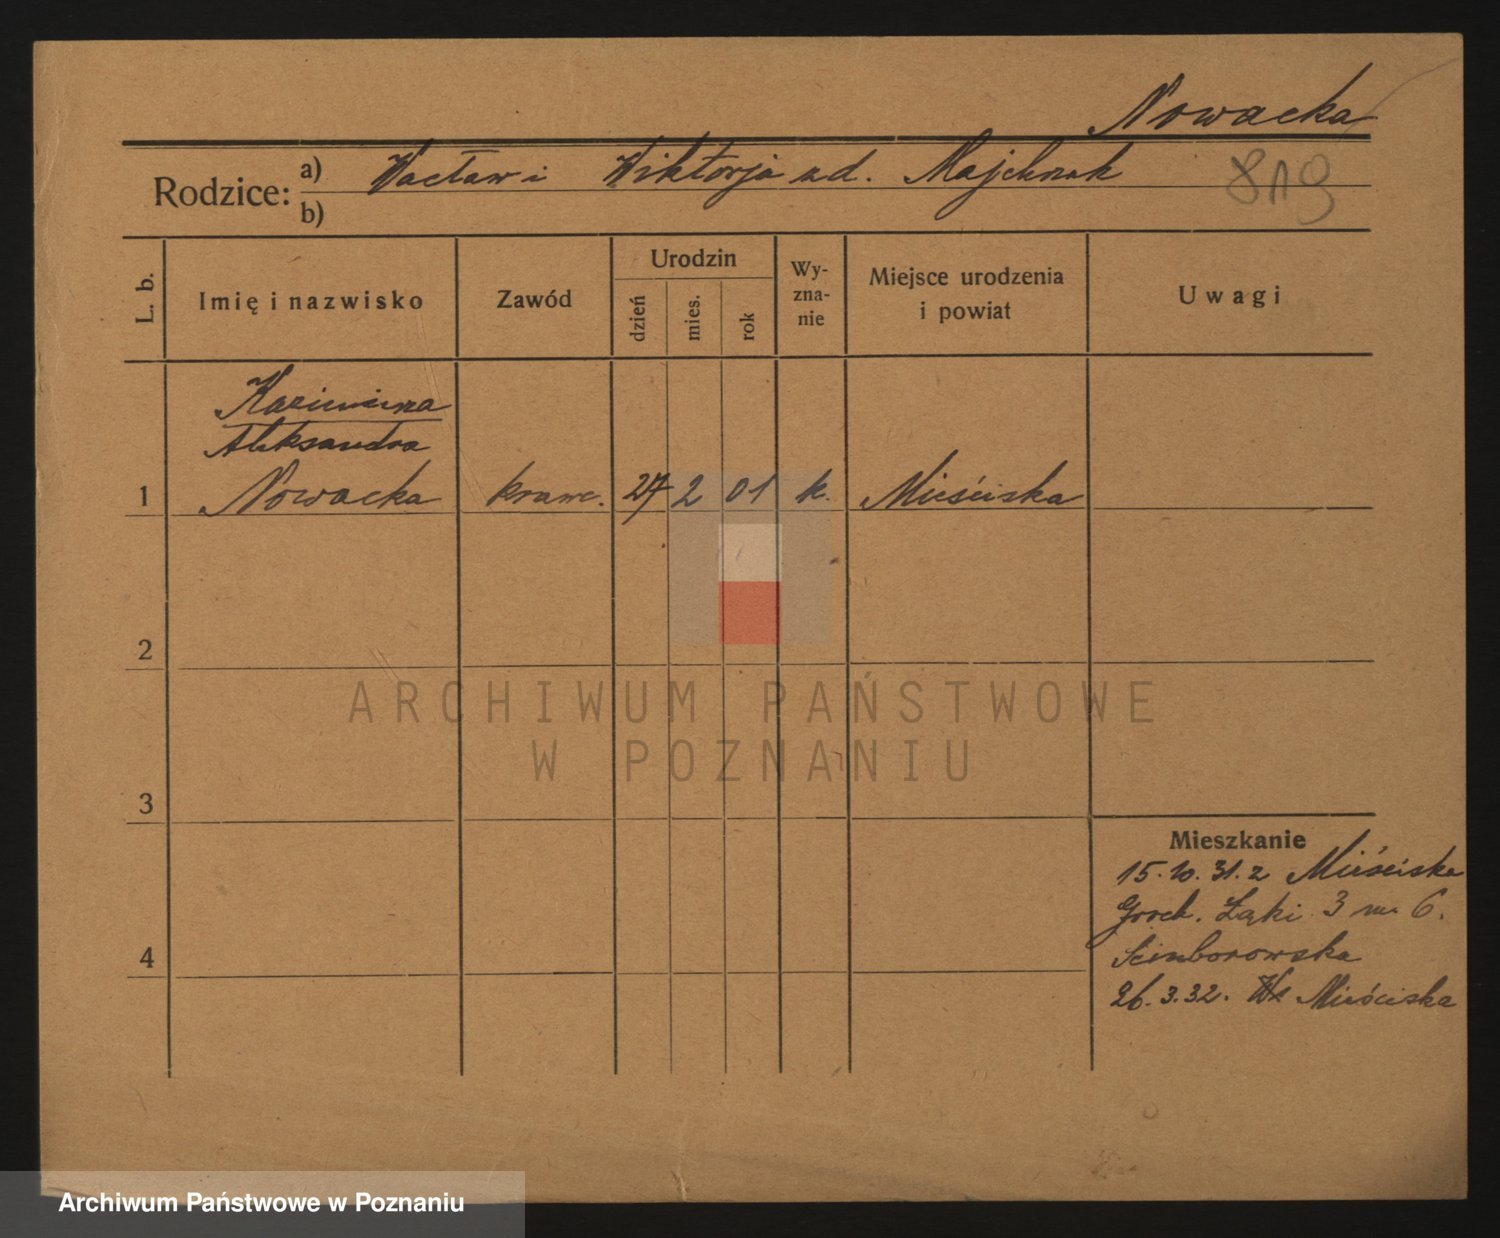 Nowacka
Rodzice: a) Wacław i Wiktorja zd. Majchrzak
b)
819
L. b.
Imię i nazwisko
Zawód
Urodzin
dzień
mies.
rok
Wy-
zna-
nie
Miejsce urodzenia
i powiat
Uwagi
Kazimiera
Aleksandra
1 Nowacka krawc. 27 2 01 k. Mieściska
2
3
4
Mieszkanie
15.10.31. z Mieściska
Groch. Łąki 3 m. 6.
Scimborowska
26.3.32. Mieściska
ARCHIWUM PAŃSTWOWE
W POZNANIU
Archiwum Państwowe w Poznaniu